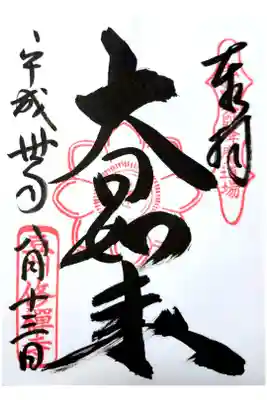 奉拝
大日如来
平成丗年
八月十三日